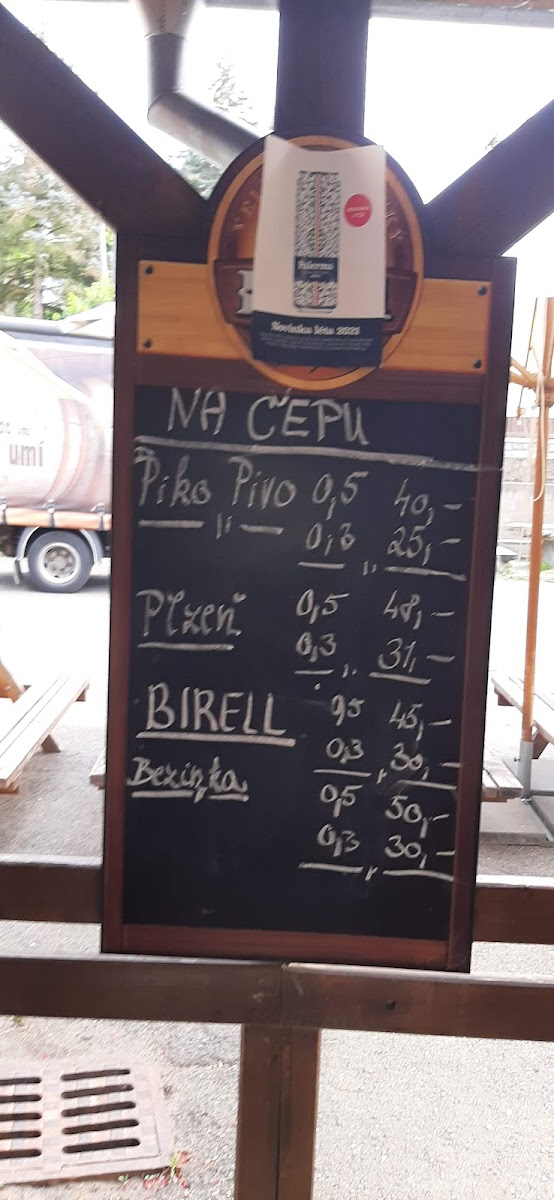 Palerma
Novinka léta 2021
NA ČEPU
Piko Pivo 0,5 40,-
0,3 25,-
Plzeň 0,5 48,-
0,3 31,-
BIRELL 0,5 45,-
0,3 30,-
Bezinka 0,5 50,-
0,3 30,-
umí